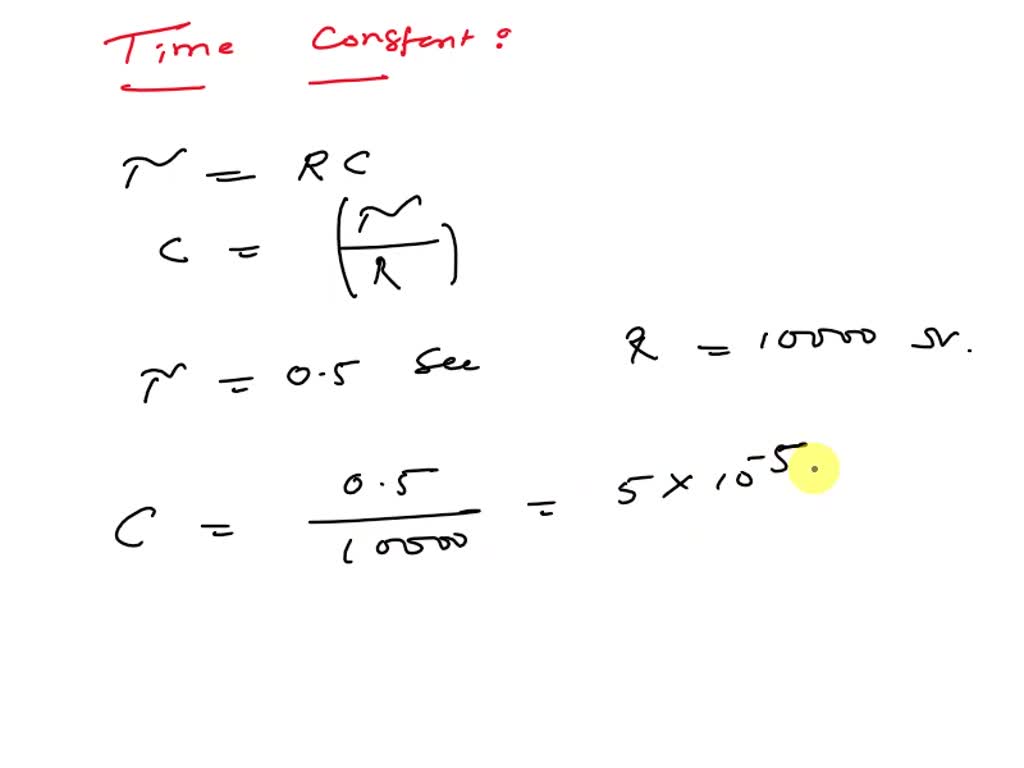 Time Constant:
τ = RC
C = (τ/R)
τ = 0.5 Sec
R = 10000 Ω.
C = 0.5/10000 = 5 × 10^-5